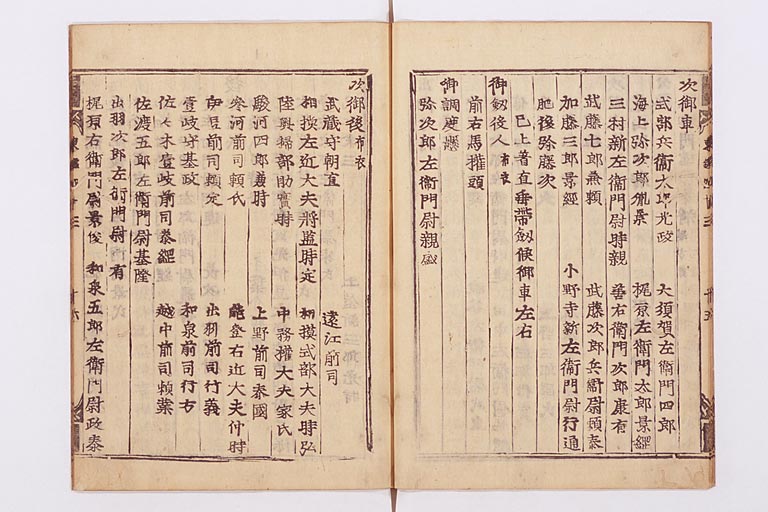 次御車
式部兵衛太郎光政 大須賀左衛門四郎
海上弥次郎胤景 梶原左衛門太郎景綱
三村新左衛門尉時親 善右衛門次郎康有
武藤七郎兼頼 武藤次郎兵衛尉頼泰
加藤三郎景経 小野寺新左衛門尉行通
肥後弥藤次
已上着直垂帯剱候御車左右
御剱役人布衣
前右馬権頭
御調度懸
弥次郎左衛門尉親盛
次御後布衣
武蔵守朝直 遠江前司
相模左近大夫将監時定 相摸式部大夫時弘
陸奥掃部助實時 中務権大夫家氏
駿河四郎兼時 上野前司泰國
参河前司頼氏 能登右近大夫仲時
伊豆前司頼定 出羽前司行義
壹岐守基政 和泉前司行方
佐々木壹岐前司泰綱 越中前司頼業
佐渡五郎左衛門尉基隆
出羽次郎左衛門尉行有
梶原右衛門尉景俊 和泉五郎左衛門尉政泰